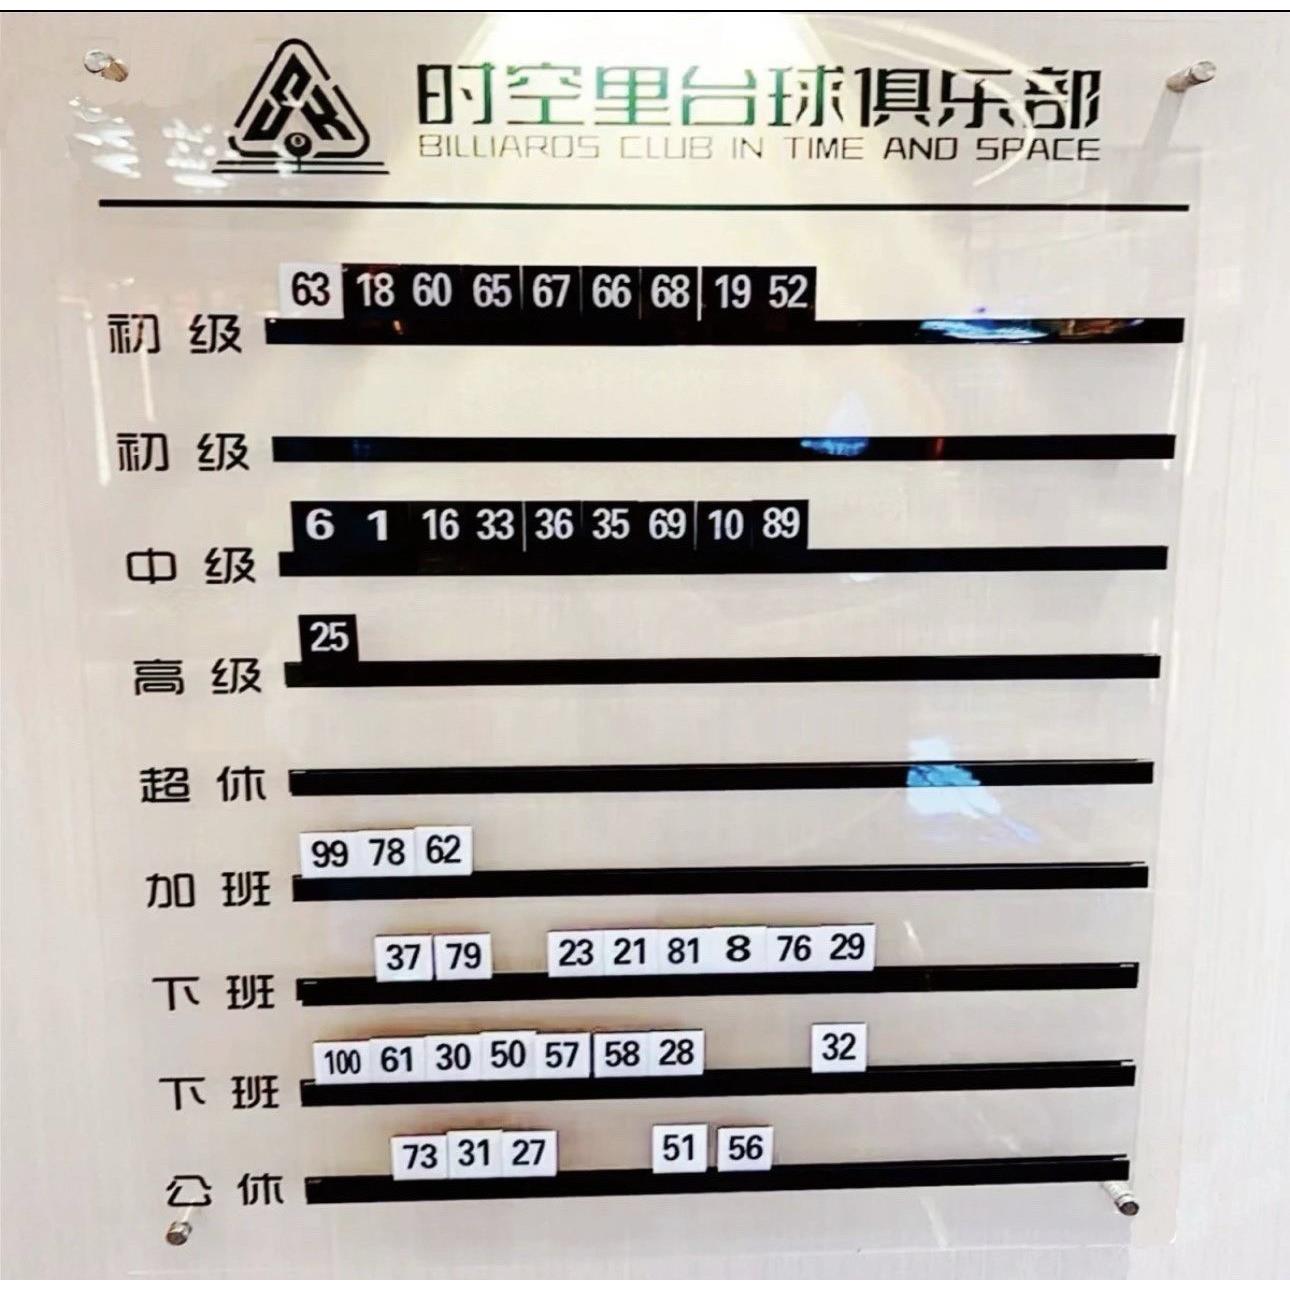 时空里台球俱乐部
BILLIARDS CLUB IN TIME AND SPACE
初级 63 18 60 65 67 66 68 19 52
初级
中级 6 1 16 33 36 35 69 10 89
高级 25
超休
加班 99 78 62
下班 37 79 23 21 81 8 76 29
下班 100 61 30 50 57 58 28 32
公休 73 31 27 51 56